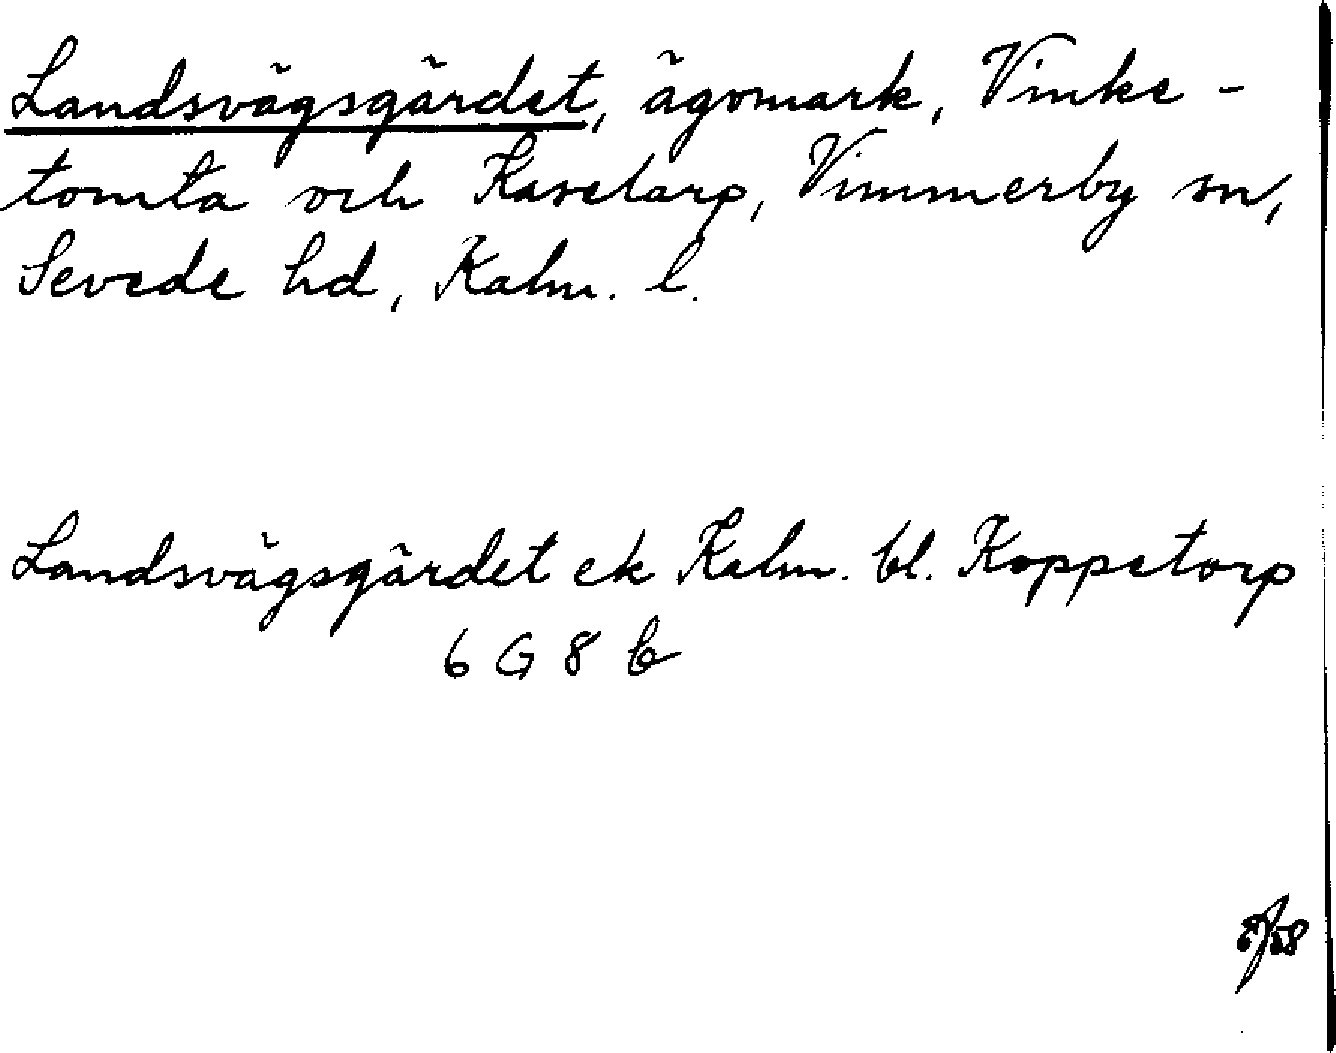 Landsvägsgärdet, ägomark, Vinke-
tomta och Kasetarp, Vimmerby sn,
Sevede hd, Kalm. l.
Landsvägsgärdet ek Kalm. bl. Koppetorp
6 G 8 b